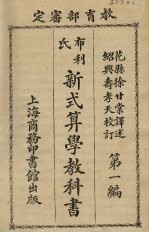 教育部審定
花縣徐甘棠譯述
紹興壽孝天校訂
第一編
布利氏
新式算學教科書
上海商務印書館出版